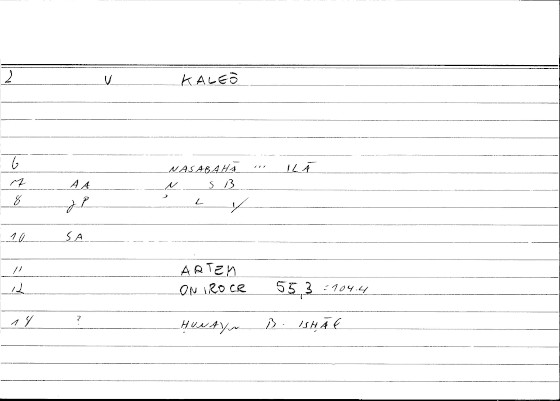 2 V KALEŌ
6 NASABAHĀ ... ILĀ
7 AA N S B
8 gP ʾ L y
10 SA
11 ARTEM
12 ONIROCR 55,3 = 104.4
14 ? ḤUNAYN B. ISḤĀḲ